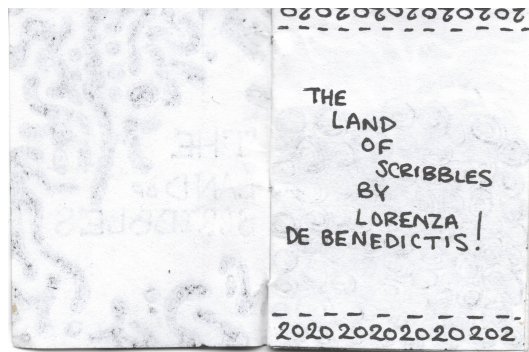 THE
LAND
OF
SCRIBBLES
BY
LORENZA
DE BENEDICTIS!
2020 2020 2020 2020 2